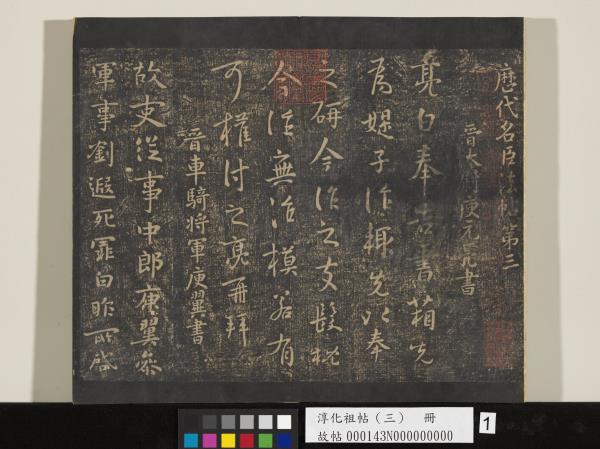 歷代名臣法帖第三
晉太尉庾元亮書
亮白奉告書箱先
為媞子作輒先以奉
之研今作之支髮
今徃無治模若有
可權付之亮再拜
晉車騎將軍庾翼書
故吏從事中郎庾翼參
軍事劉遐死罪白昨所啓
淳化祖帖（三） 冊
故帖 000143N000000000
1